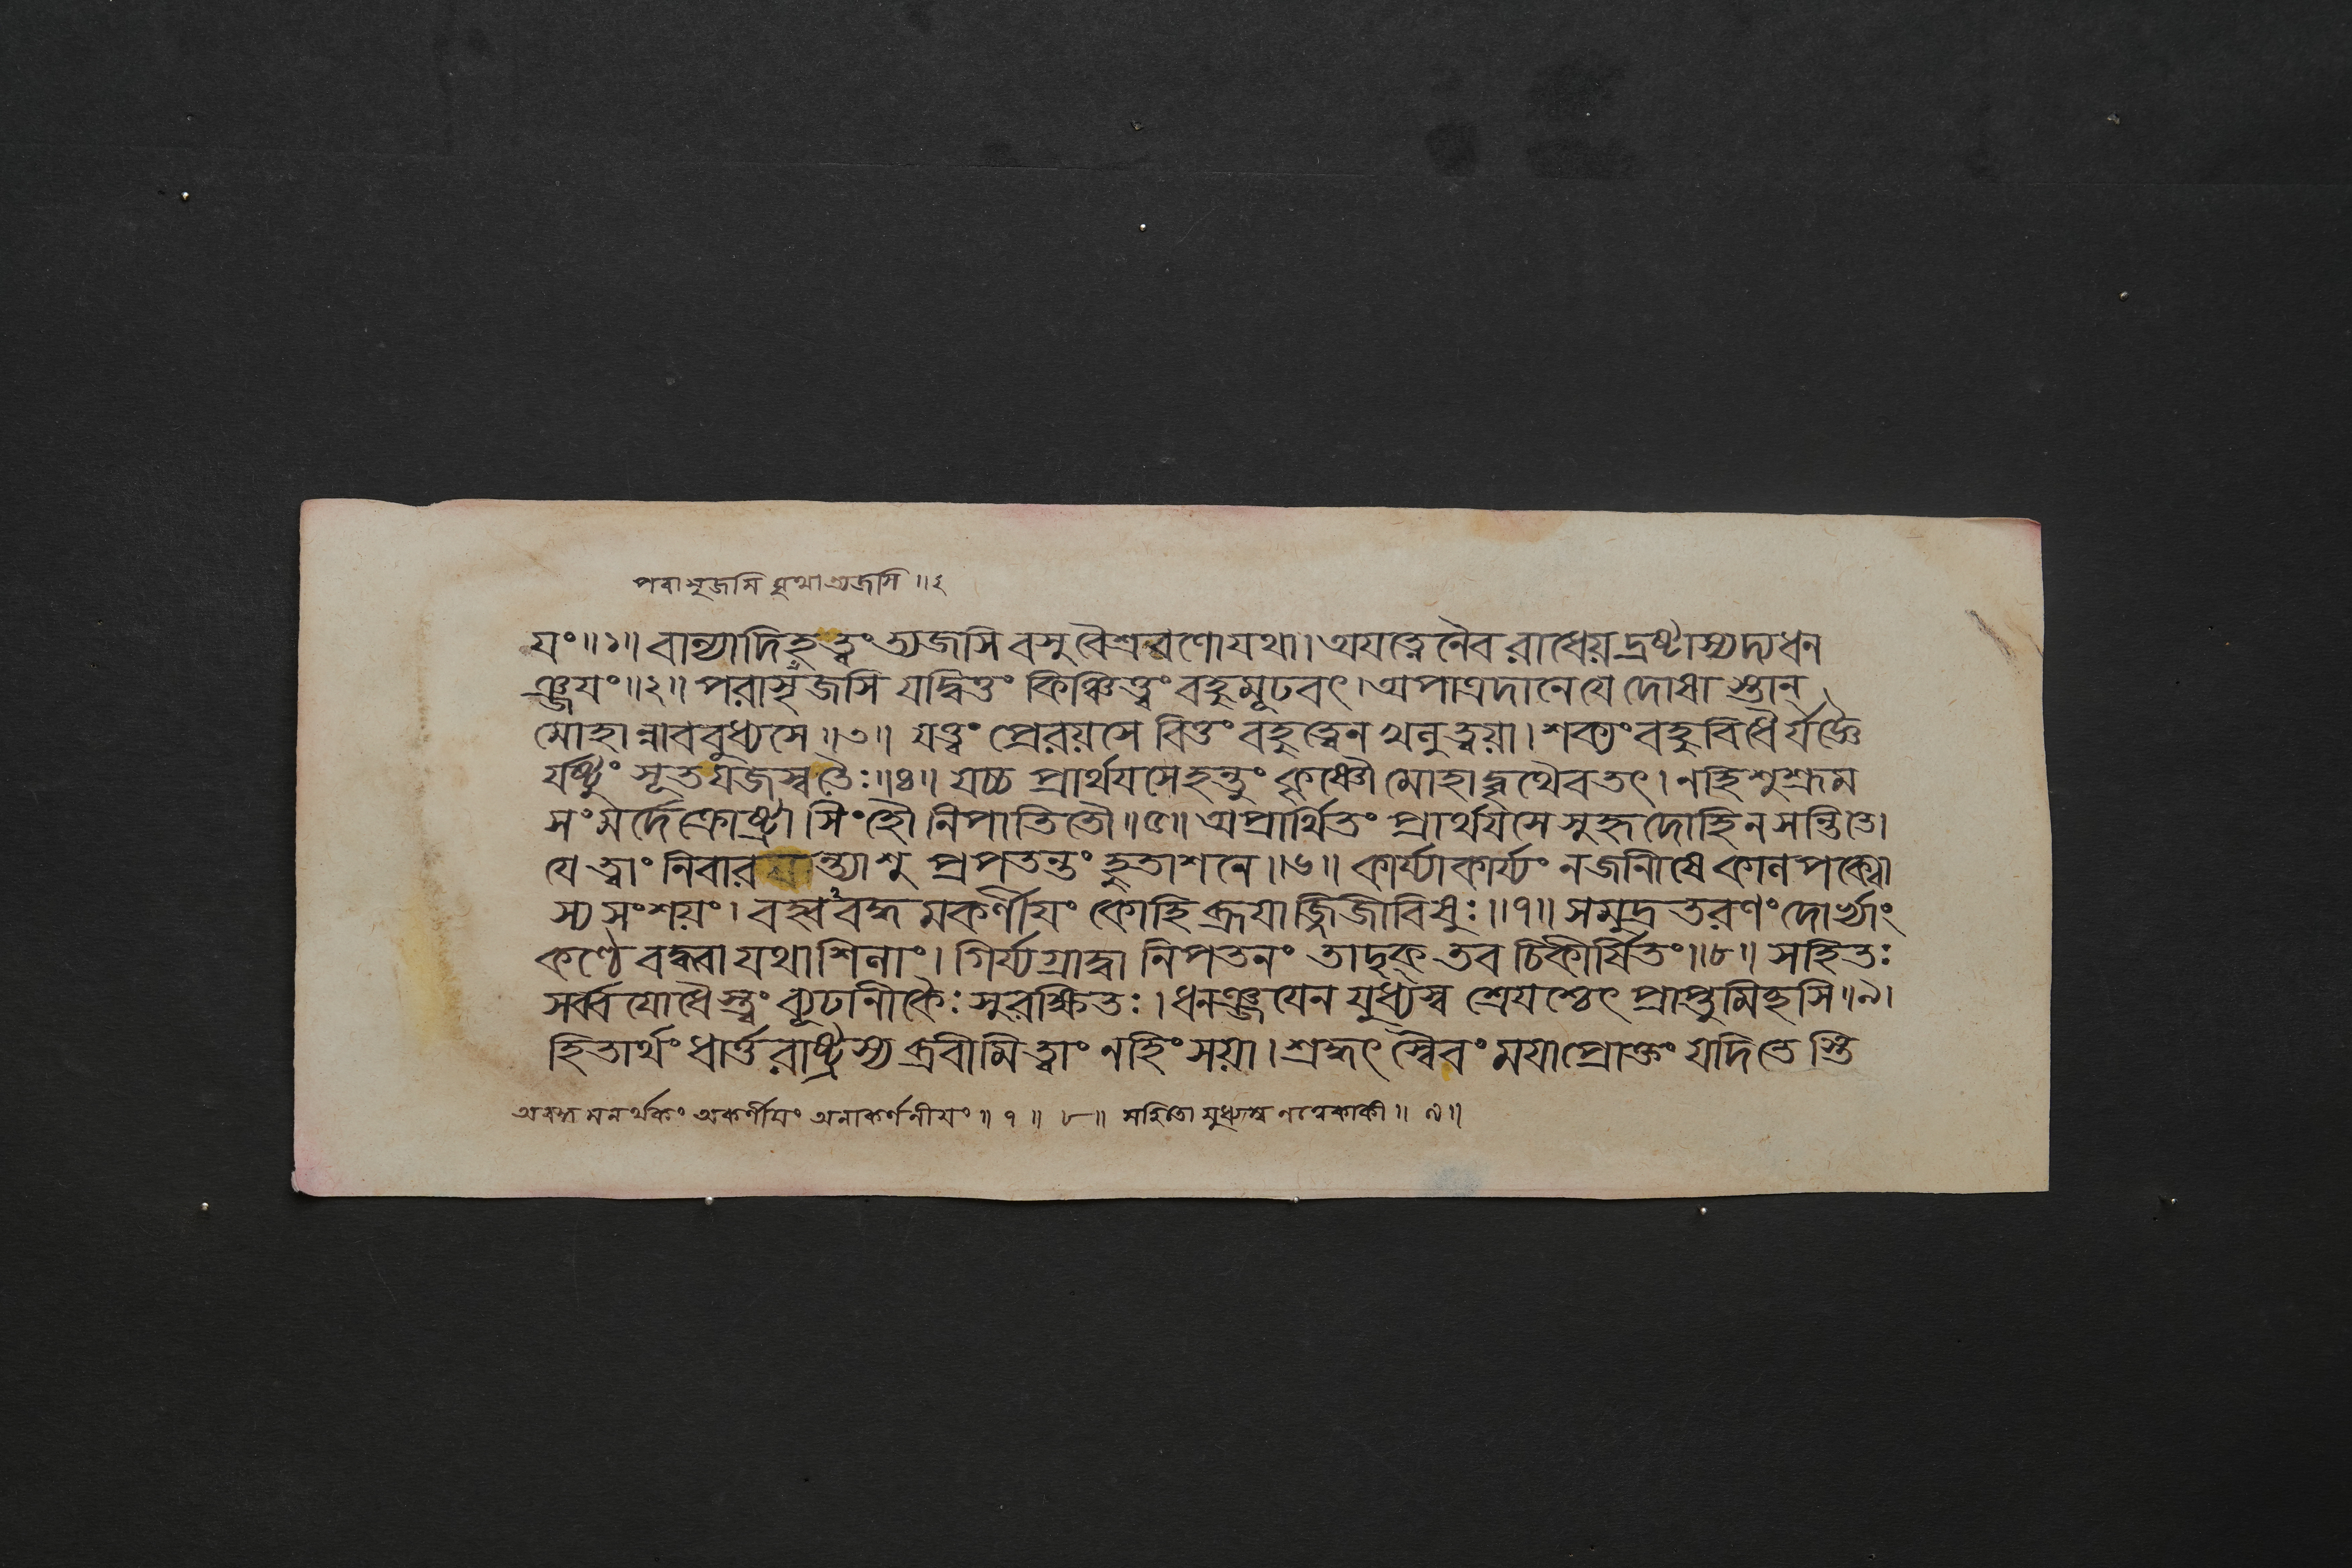 পরাসৃজসি মুখা ত্যজসি ॥৩
যং॥১॥ বাল্যাদিহত্ত্বং ত্যজসি বসুবৈশ্রবণোযথা। অযত্নেনৈব রাধেয় দ্রষ্টাস্যদ্যধন
ঞ্জযং॥২॥ পরাসৃজসি যদ্বিত্তং কিঞ্চিত্ত্বং বহুমূঢবৎ। অপাত্রদানেযে দোষা স্তান্
মোহান্নাববুধ্যসে॥৩॥ যত্ত্বং প্রেরয়সে বিত্তং বহুত্বেন খনুত্বয়া। শক্যংবহুবিধৈর্যজ্ঞৈ
র্যষ্টুং সূতযজস্বতৈঃ॥৪॥ যচ্চ প্রার্থযসেহন্তুং কৃষ্ণৌমোহাদ্বৃথৈবতৎ। নহিশুশ্রুম
সংমর্দেক্রোষ্ট্রা সিংহৌ নিপাতিতৌ॥৫॥ অপ্রার্থিতং প্রার্থযসে সুহৃদোহিন সন্তিতে।
যে ত্বাং নিবারয়ন্ত্যাশু প্রপতন্তং হুতাশনে॥৬॥ কার্য্যাকার্য্যং নজানীষে কালপক্বো
স্য সংশয়ং। বহ্ববদ্ধমকর্ণীযং কোহি ব্রূযাজ্জিজীবিষুঃ॥৭॥ সমুদ্র তরণং দোর্ভ্যাং
কণ্ঠে বদ্ধ্বা যথাশিলাং। গির্য্যগ্রাদ্বা নিপতনং তাদৃক্ তব চিকীর্ষিতং॥৮॥ সহিতঃ
সর্ব্বযোধৈস্ত্বং ব্যূঢানীকৈঃ সুরক্ষিতঃ। ধনঞ্জযেন যুধ্যস্ব শ্রেযশ্চেৎ প্রাপ্তুমিচ্ছসি॥৯।
হিতার্থং ধার্ত্তরাষ্ট্রস্য ব্রবীমিত্বাং নহিংসয়া। শ্রদ্ধৎ স্বৈবং মযাপ্রোক্তং যদিতেস্তি
অবদ্ধ মনর্থকং অকর্ণীযং অনাকর্ণনীযং॥ ৭॥ ৮॥ সহিতো যুধ্যস্ব নত্বেকাকী॥ ৯॥